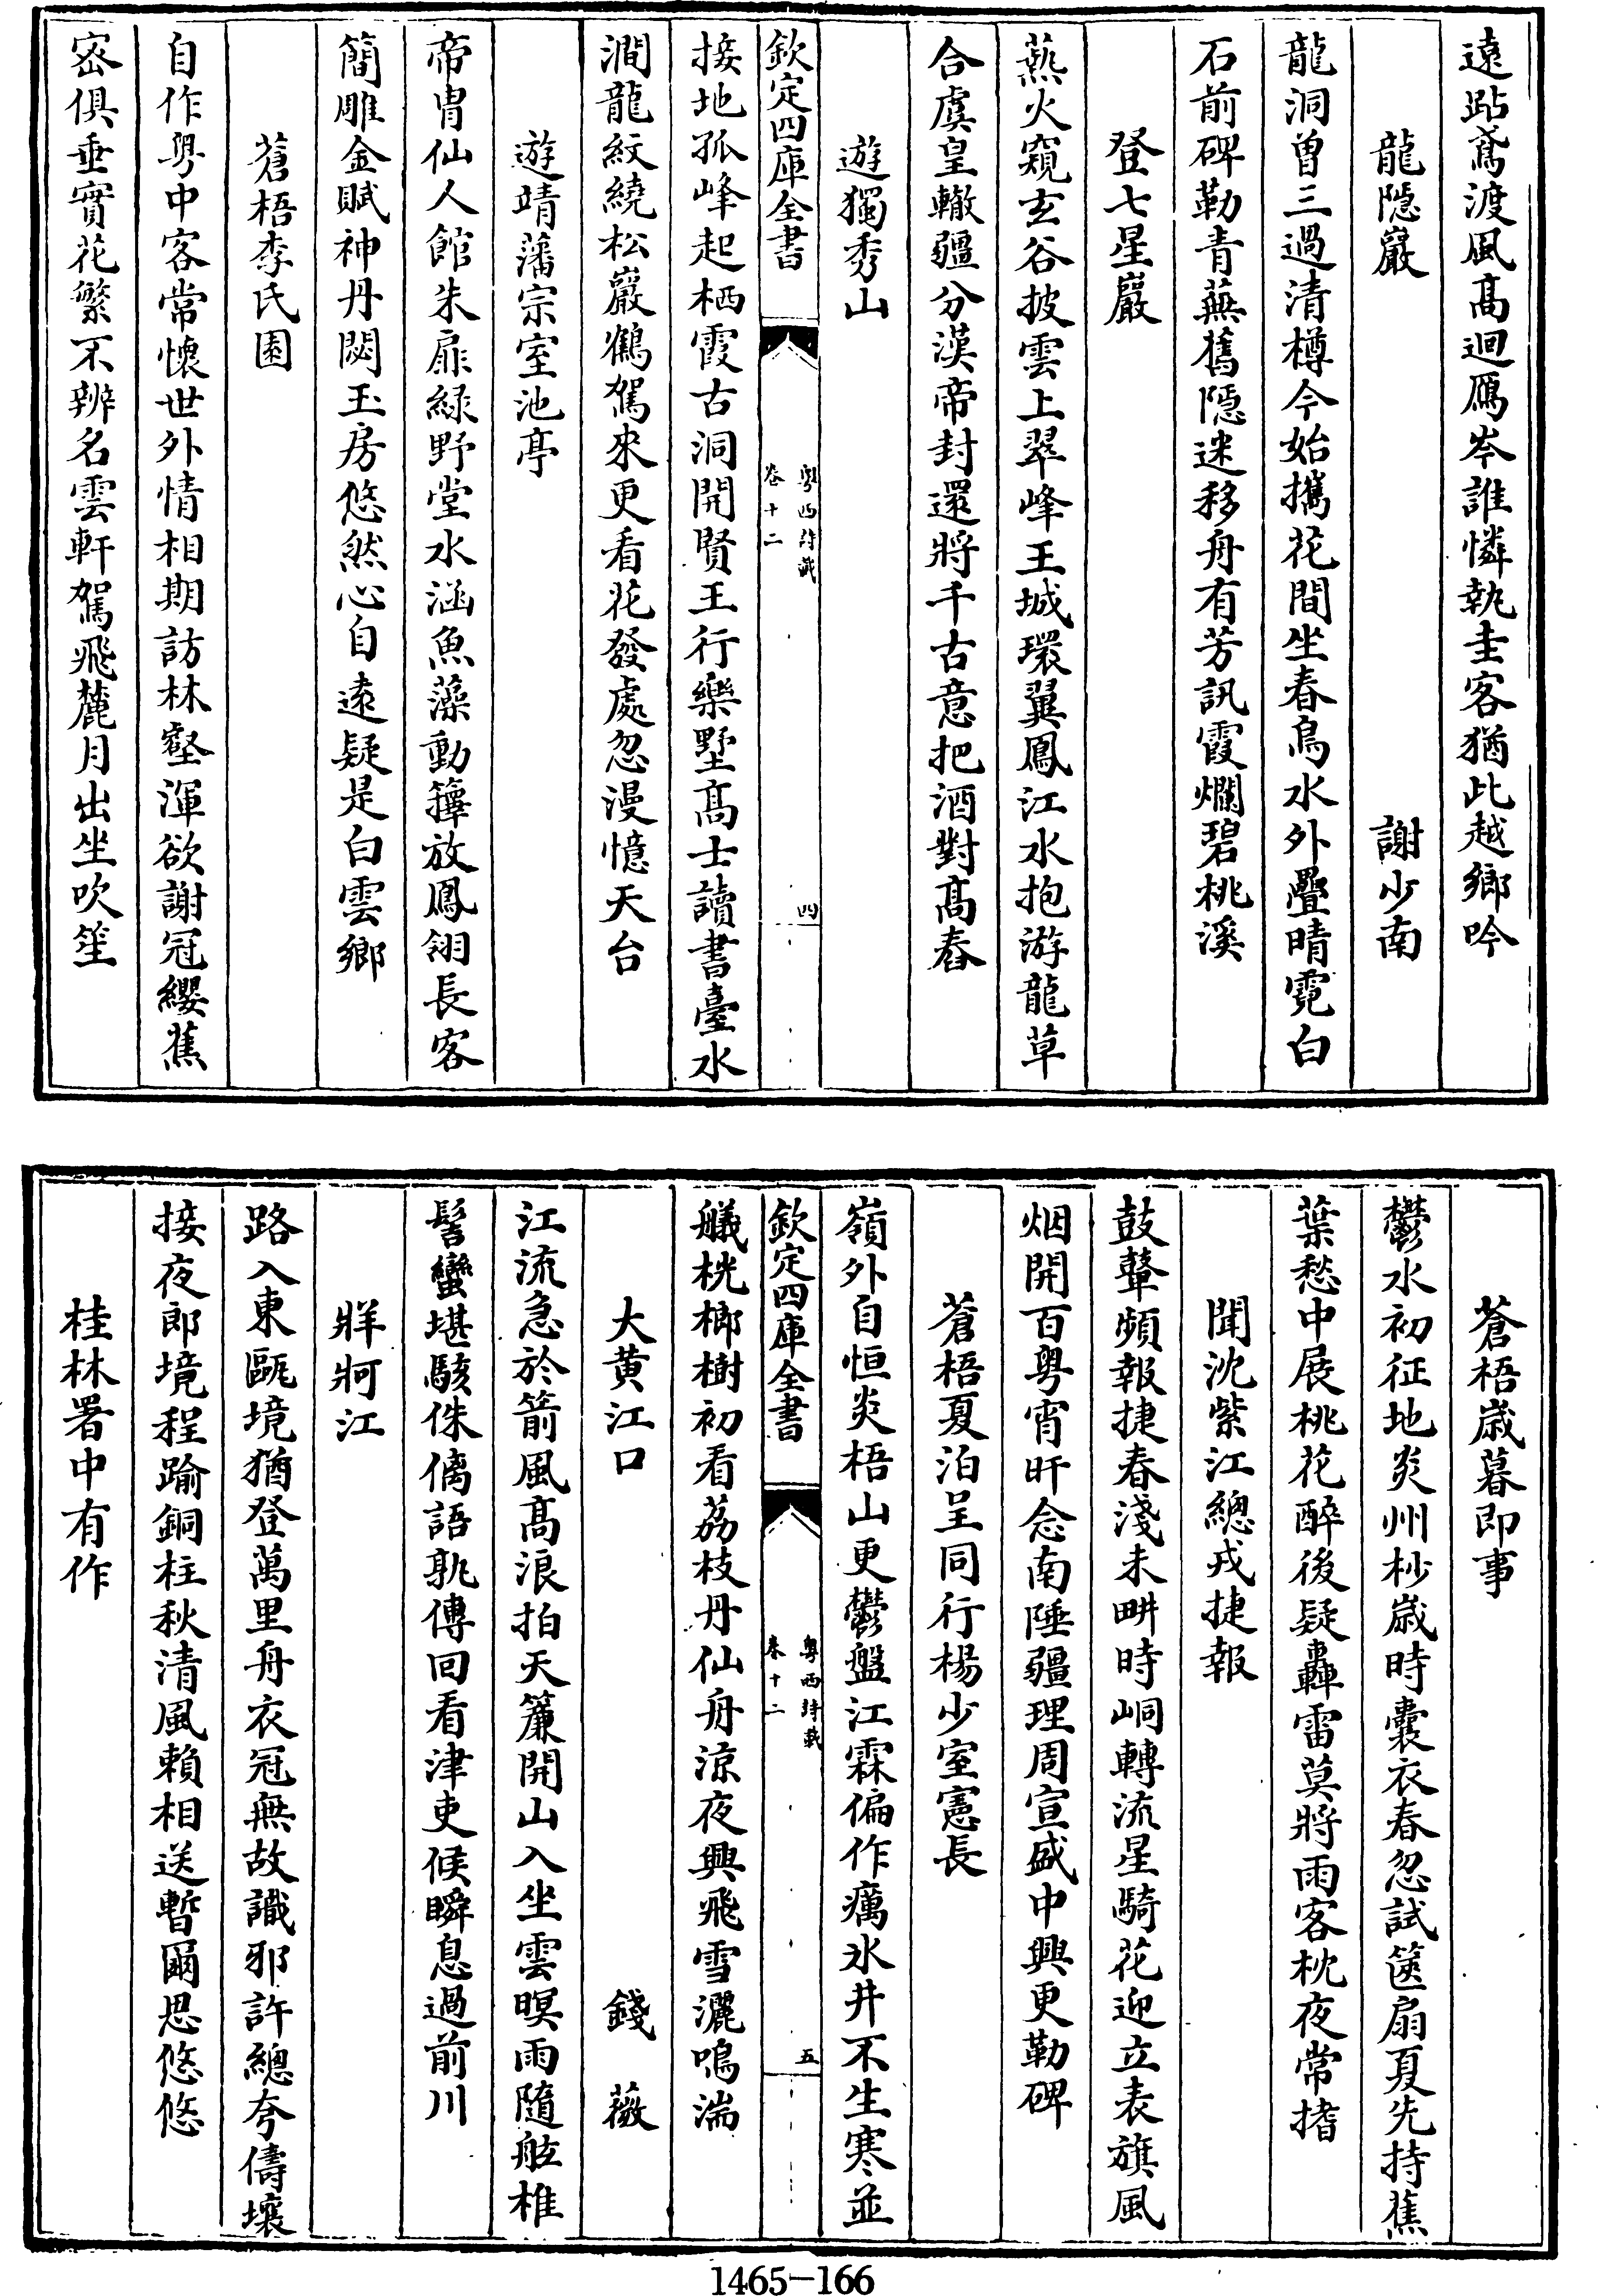 遠跕鳶渡風髙迴鴈岑誰憐執圭客猶此越鄉吟
龍隠巖　謝少南
龍洞曽三過清樽今始攜花間坐春鳥水外疊晴霓白
石前碑勒青蕪舊隠迷移舟有芳訊霞爛碧桃溪
登七星巖
爇火窺玄谷披雲上翠峰王城環翼鳳江水抱游龍草
合虞皇轍疆分漢帝封還將千古意把酒對髙舂
遊獨秀山
欽定四庫全書
粤西詩載
卷十二
四
接地孤峰起栖霞古洞開賢王行樂墅髙士讀書臺水
澗龍紋繞松巖鶴駕來更看花發處忽漫憶天台
遊靖藩宗室池亭
帝胄仙人館朱扉緑野堂水涵魚藻動籜放鳳翎長客
簡雕金賦神丹閟玉房悠然心自逺疑是白雲鄉
蒼梧李氏園
自作粤中客常懷世外情相期訪林壑渾欲謝冠纓蕉
宻俱垂實花繁不辨名雲軒駕飛麓月出坐吹笙
蒼梧歳暮即事
鬱水初征地炎州杪歳時囊衣春忽試篋扇夏先持蕉
葉愁中展桃花醉後疑轟雷莫將雨客枕夜常搘
聞沈紫江總戎捷報
鼓鼙頻報捷春淺未畊時峒轉流星騎花迎立表旗風
烟開百粤宵旰念南陲疆理周宣盛中興更勒碑
蒼梧夏泊呈同行楊少室憲長
嶺外自恒炎梧山更鬱盤江霖偏作癘氷井不生寒並
欽定四庫全書
粤西詩載
卷十二
五
艤桄榔樹初看荔枝丹仙舟涼夜興飛雪灑鳴湍
大黄江口　錢薇
江流急於箭風髙浪拍天簾開山入坐雲暝雨隨舷椎
髻蠻堪駭侏儷語孰傳回看津吏候瞬息過前川
牂牁江
路入東甌境猶登萬里舟衣冠無故識邪許總夸儔壤
接夜郎境程踰銅柱秋清風頼相送暫爾思悠悠
桂林署中有作
1465-166